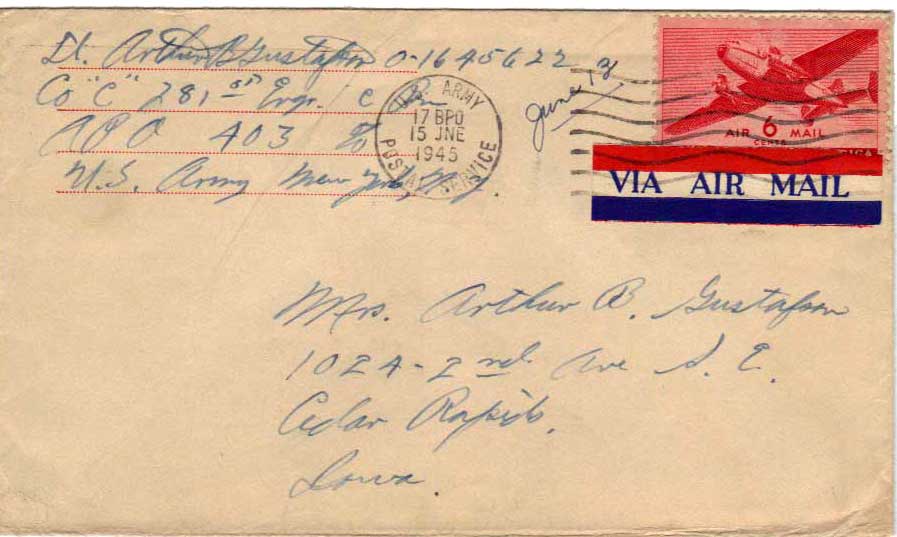 Lt. Arthur B Gustafson O-1645622
Co "C" 281st Engr. C Bn
APO 403 %
U.S. Army New York, N.Y.
U.S. ARMY
17 BPO
15 JNE
1945
POSTAL SERVICE
June 13
AIR 6 MAIL
CENTS
VIA AIR MAIL
Mrs. Arthur B. Gustafson
1024-2nd Ave S.E.
Cedar Rapids,
Iowa.